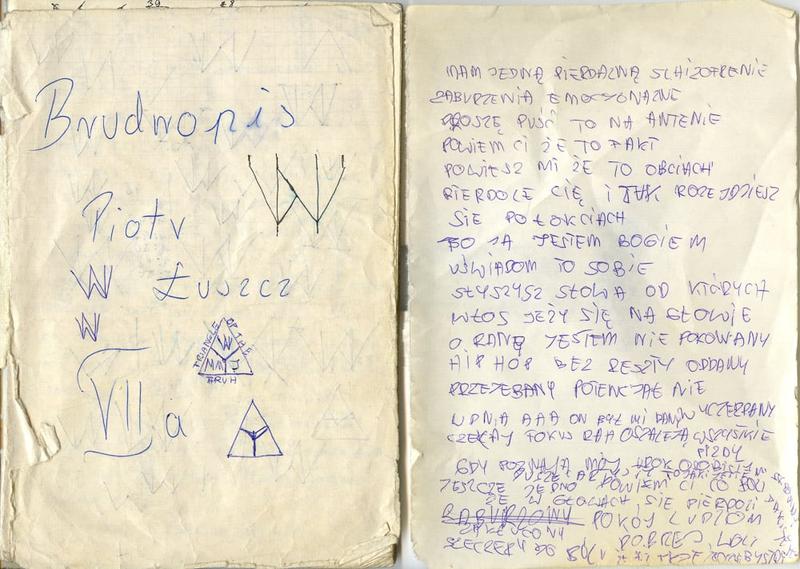 39 28
Brudnopis
W
Piotr
W Łuszcz
W
TRIANGLE OF THE
W
MM J
TRUH
VII a
MAM JEDNĄ PIERDALNĄ SCHIZOFRENIE
ZABURZENIA EMOCJONALNE
PROSZĘ PUŚĆ TO NA ANTENIE
POWIEM CI ŻE TO FAKT
POWIESZ MI ŻE TO OBCIACH
PIERDOLE CIĘ I TAK ROZEJDZIESZ
SIE PO ŁOKCIACH
BO JA JESTEM BOGIEM
UŚWIADOM TO SOBIE
SŁYSZYSZ SŁOWA OD KTÓRYCH
WŁOS JEŻY SIĘ NA GŁOWIE
O RANĘ JESTEM NIE POKOWANY
HIP HOP BEZ RESZTY ODDANY
PRZEJEBANY POTENCJAŁ NIE
WYCZERPANY
CZEKAJ FOKUS RAH OSZALEJĄ WSZYSTKIE
PIZDY
GDY POZNAJĄ MÓJ UROK OSOBISTY
JESZCZE JEDNO POWIEM CI CO BOLI
ŻE W GŁOWACH SIE PIERDOLI
POKÓJ LUDZIOM
DOBREJ WOLI